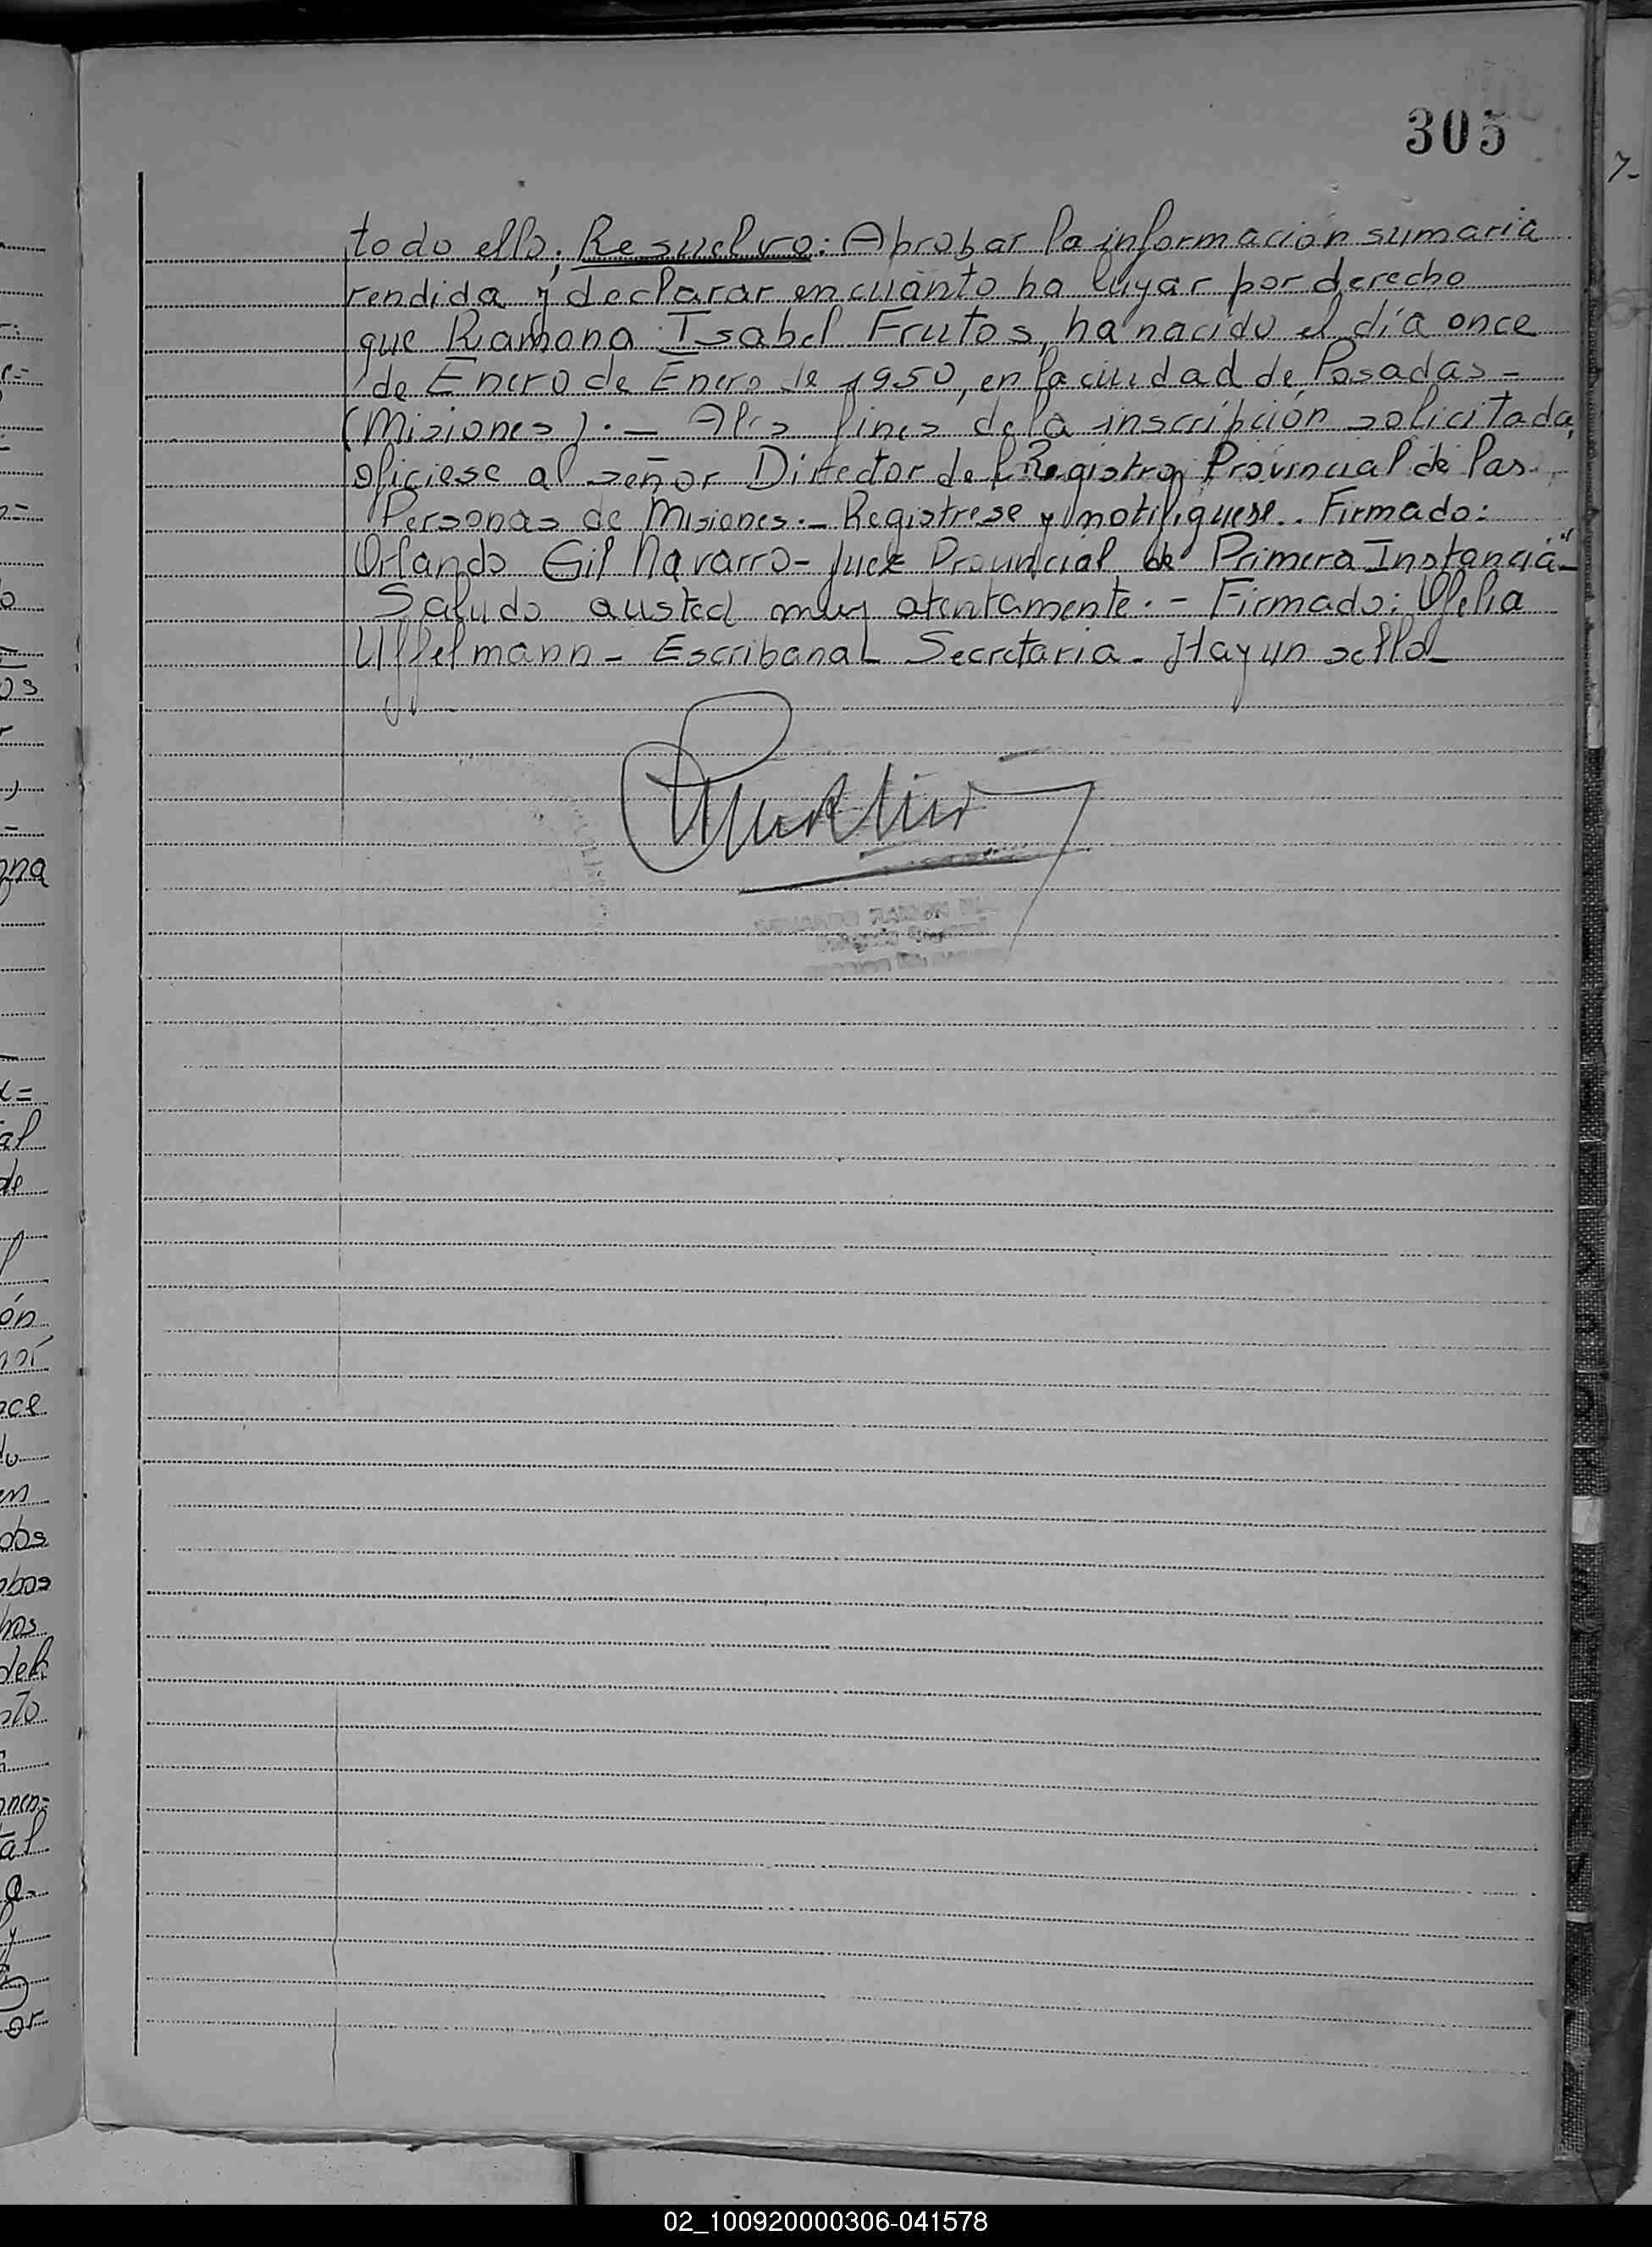 305
todo ello; Resuelvo: Aprobar la información sumaria
rendida y declarar en cuanto ha lugar por derecho
que Ramona Isabel Frutos, ha nacido el día once
de Enero de Enero de 1950, en la ciudad de Posadas-
(Misiones).- A los fines de la inscripción solicitada,
oficiese al señor Director del Registro Provincial de las
Personas de Misiones.- Registrese y notifiquese.. Firmado:
Orlando Gil Navarro- Juez Provincial de Primera Instancia"-
Saludo a usted muy atentamente.- Firmado: Ofelia
Uffelmann- Escribana L Secretaria- Hay un sello-
02_100920000306-041578